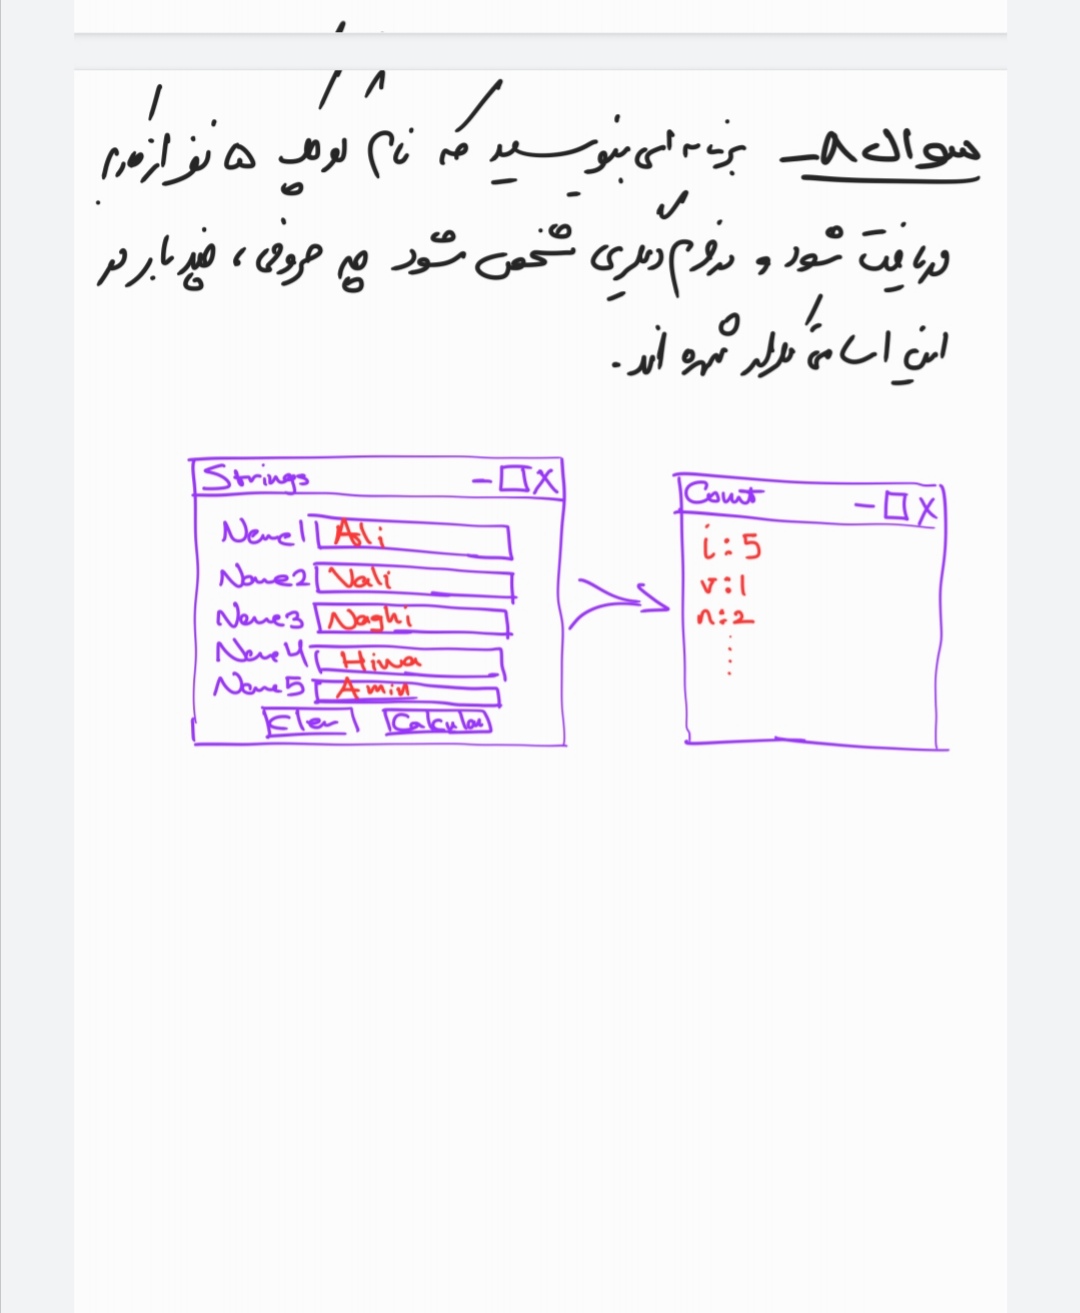 سوال ۸- برنامه ای بنویسید که نام کوچک ۵ نفر از مردم
دریافت شود و در فرم دیگری مشخص شود چه حروفی، چند بار در
این اسامی تکرار شده اند.
Strings
Name1 Ali
Name2 Vali
Name3 Naghi
Name4 Hiwa
Name5 Amin
Clear Calcular
Count
i:5
v:1
n:2